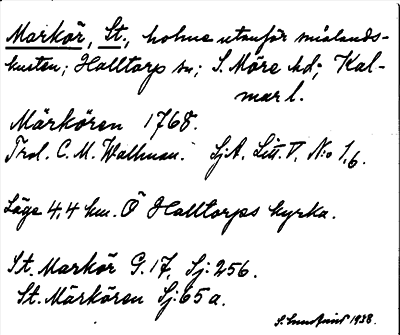 Markör, St., holme utanför smålands-
kusten; Halltorp sn; S. Möre hd; Kal-
mar l.
Märkören 1768.
Trol. C. M. Wallman. SjA. Litt. V, N:o 1,6.
Läge 4,4 km. Ö Halltorps kyrka.
St. Markör G. 17, Sj: 256.
St. Märkören Sj: 65 a.
1938.